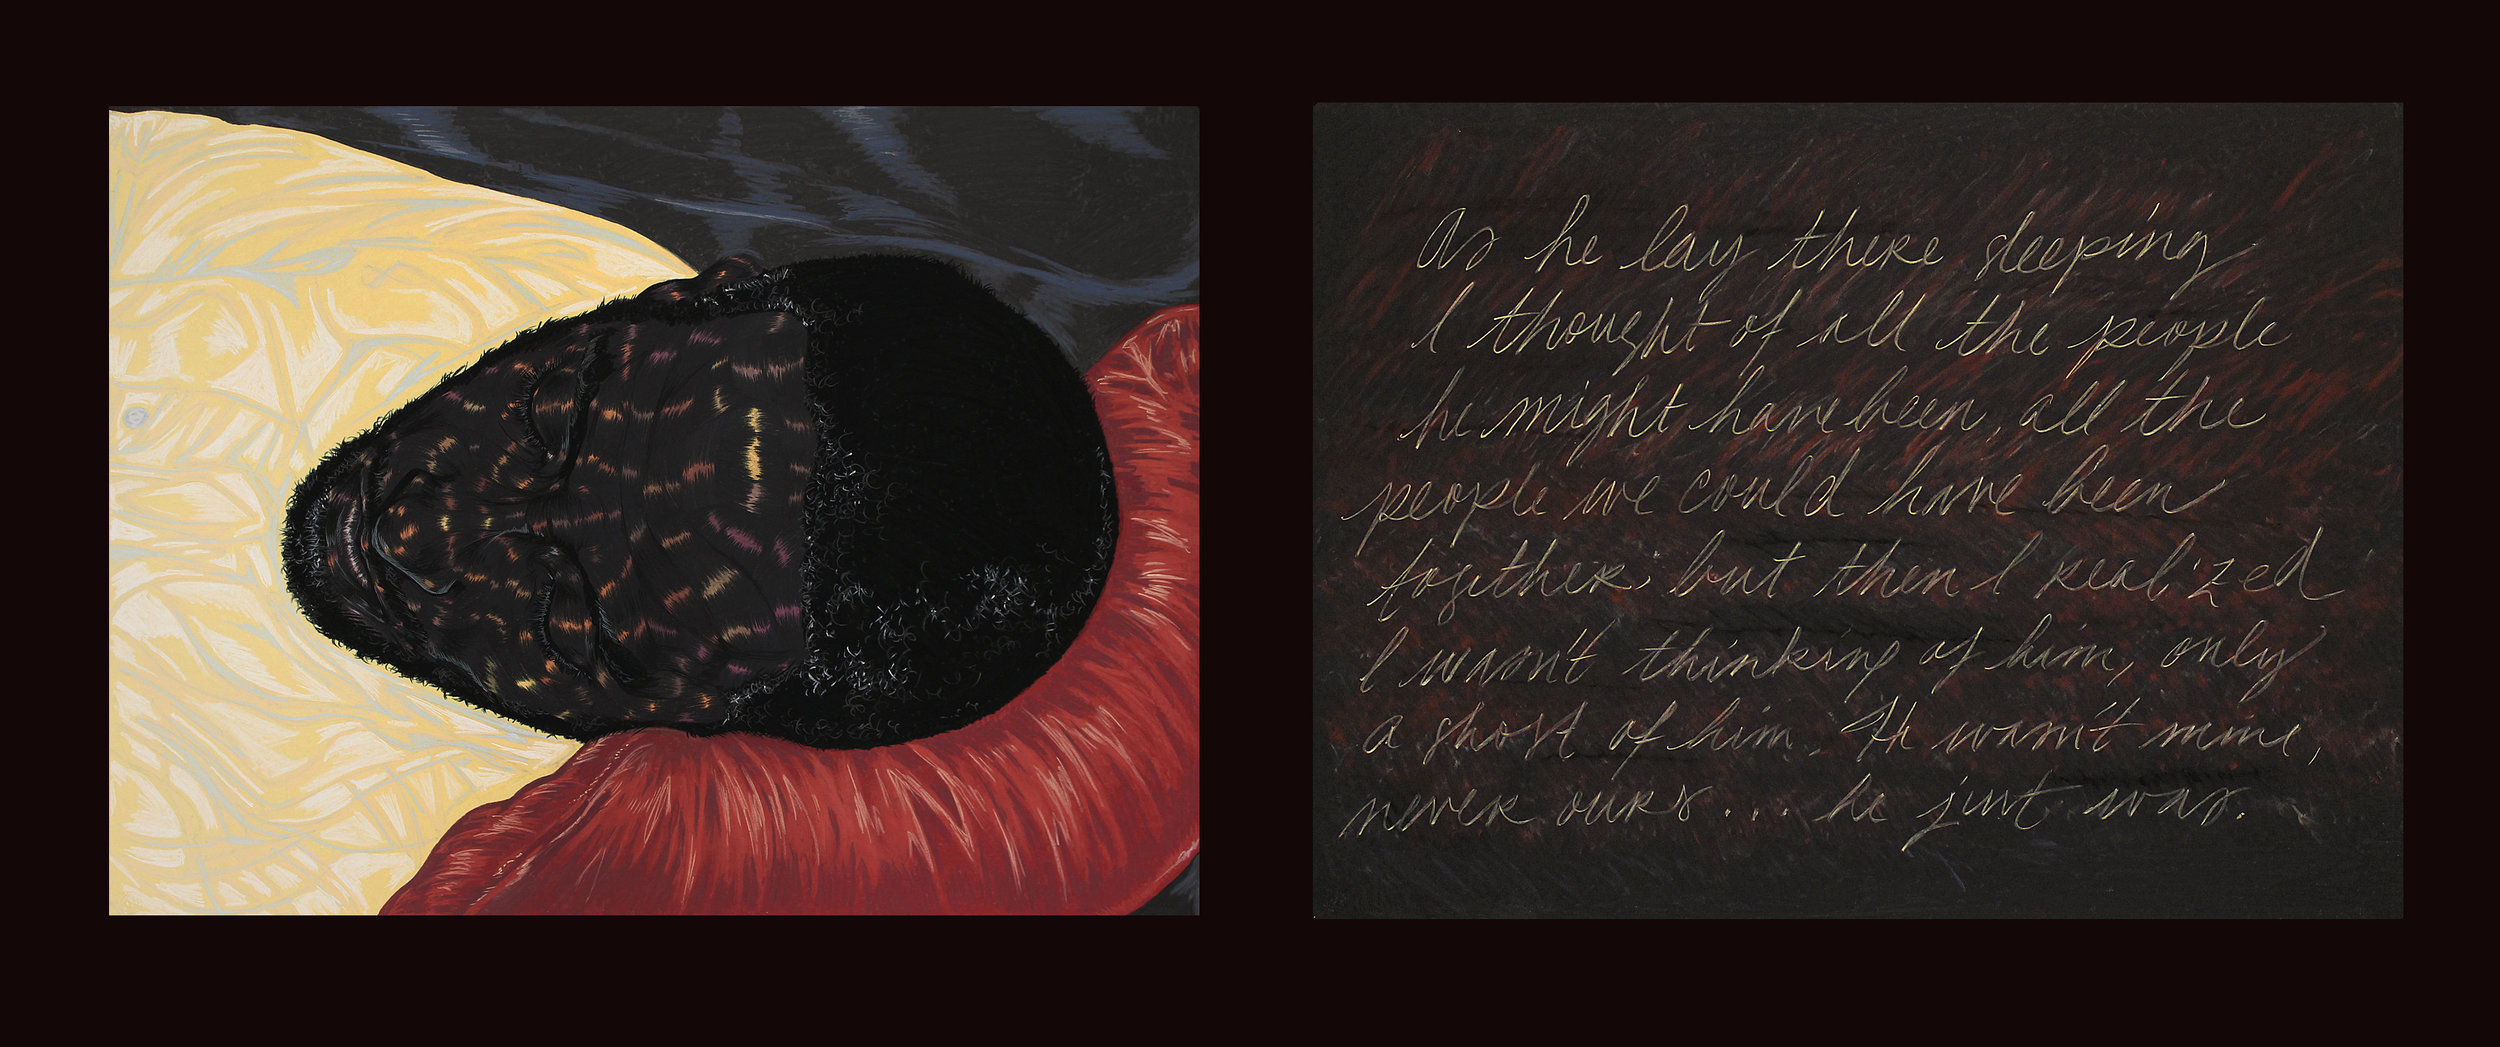 As he lay there sleeping
I thought of all the people
he might have been, all the
people we could have been
together, but then I realized
I wasn't thinking of him, only
a ghost of him. He wasn't mine,
never ours... he just was.